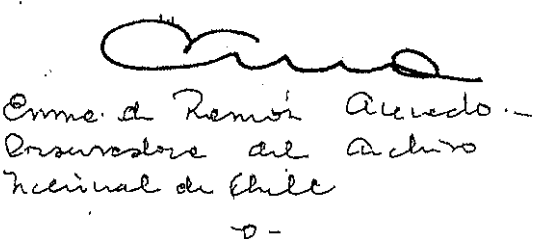 Emma de Ramón Acevedo.-
Conservadora del Archivo
Nacional de Chile
-o-